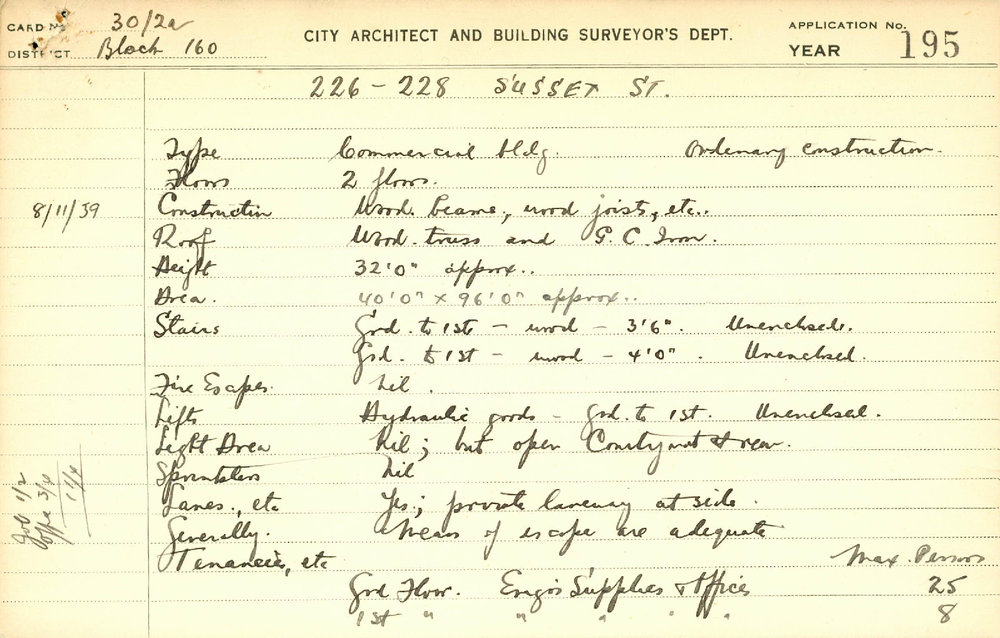 CARD No 30/2a
DISTRICT Block 160
CITY ARCHITECT AND BUILDING SURVEYOR'S DEPT.
APPLICATION No.
YEAR 195
226 - 228 SUSSEX ST.
Type Commercial bldg. Ordinary construction.
Floors 2 floors.
8/11/39 Construction Wood beams, wood joists, etc..
Roof Wood truss and G. C. Iron.
Height 32'0" approx..
Area. 40'0" x 96'0" approx..
Stairs Grd. to 1st - wood - 3'6". Unenclosed.
Grd. to 1st - wood - 4'0". Unenclosed.
Fire Escapes. Nil.
Lifts Hydraulic goods - Grd. to 1st. Unenclosed.
Light Area Nil; but open Courtyard at rear.
Sprinklers Nil
Lanes., etc Yes; private laneway at side.
Generally. Means of escape are adequate
Tenancies, etc Max. Persons
Grd Floor. Eng's Supplies & Offices 25
1st " " " " " 8
1/2
3/4
1 1/4